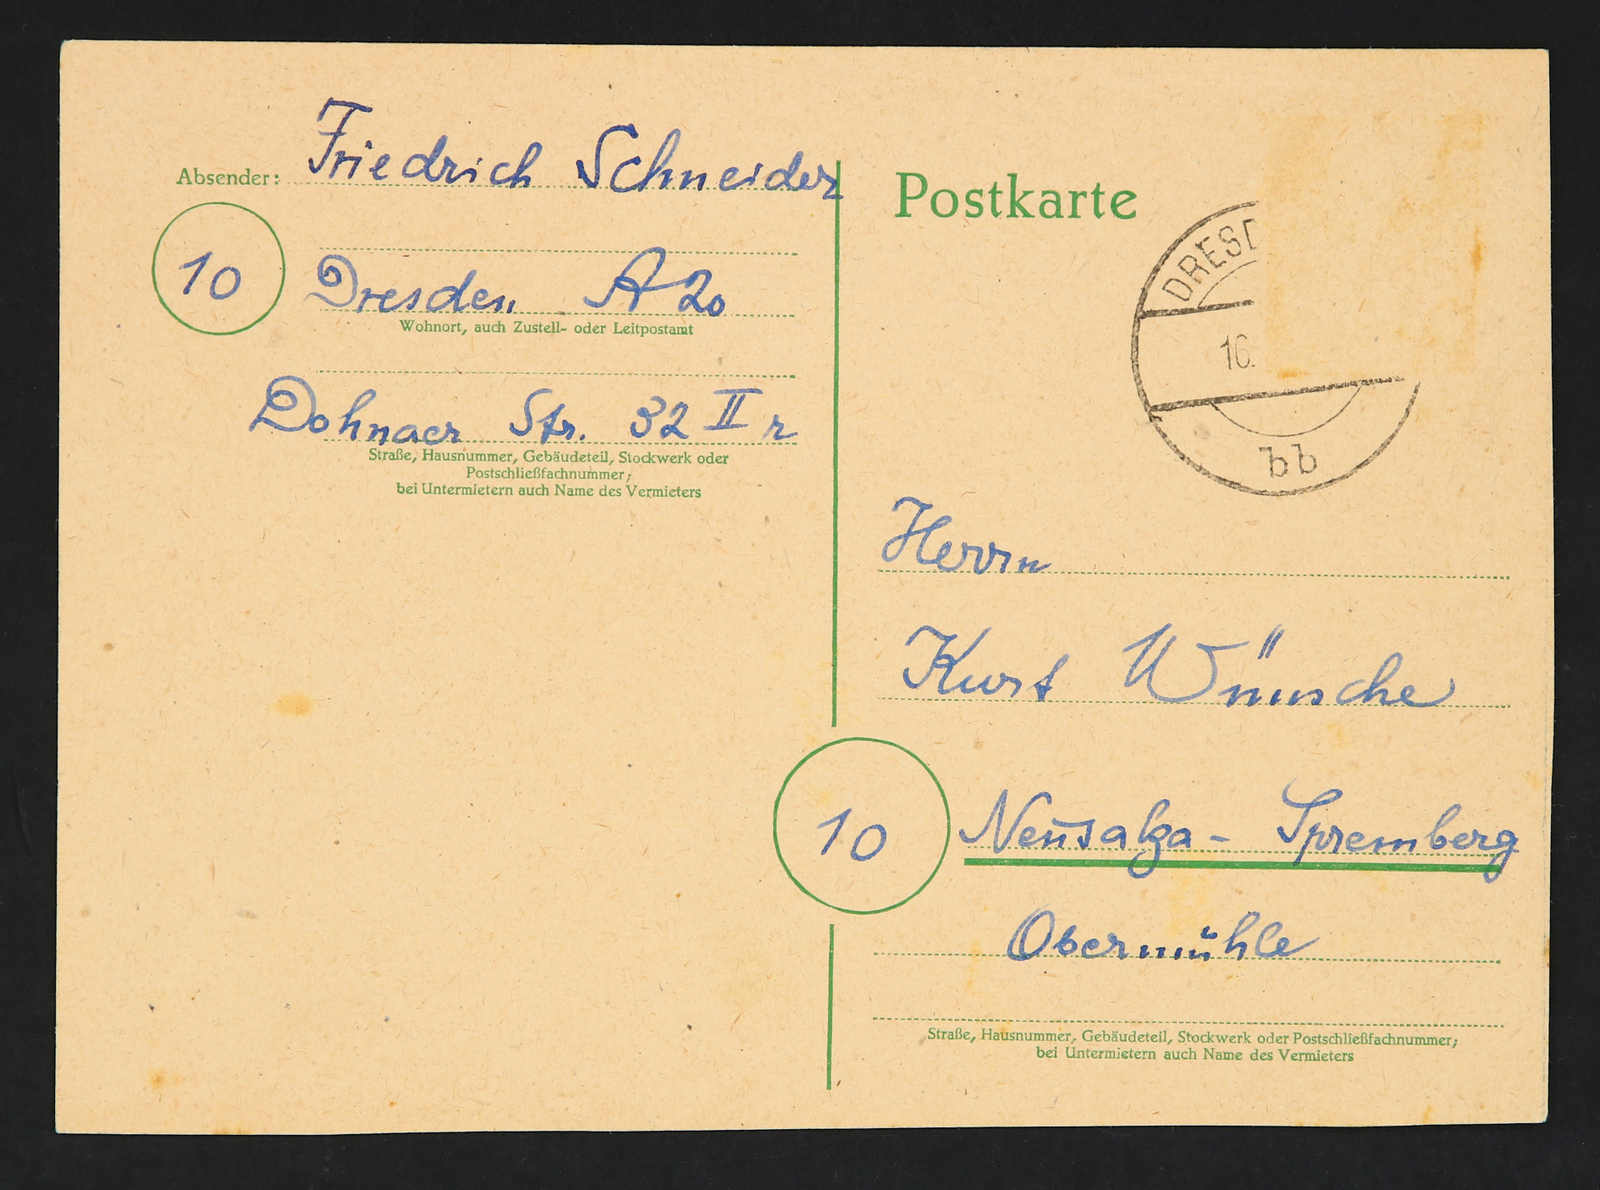 Absender: Friedrich Schneider
10 Dresden A 20
Wohnort, auch Zustell- oder Leitpostamt
Dohnaer Str. 32 II r
Straße, Hausnummer, Gebäudeteil, Stockwerk oder
Postschließfachnummer;
bei Untermietern auch Name des Vermieters
Postkarte
DRESD
10.
bb
Herrn
Kurt Wünsche
10 Neusalza - Spremberg
Obermühle
Straße, Hausnummer, Gebäudeteil, Stockwerk oder Postschließfachnummer;
bei Untermietern auch Name des Vermieters